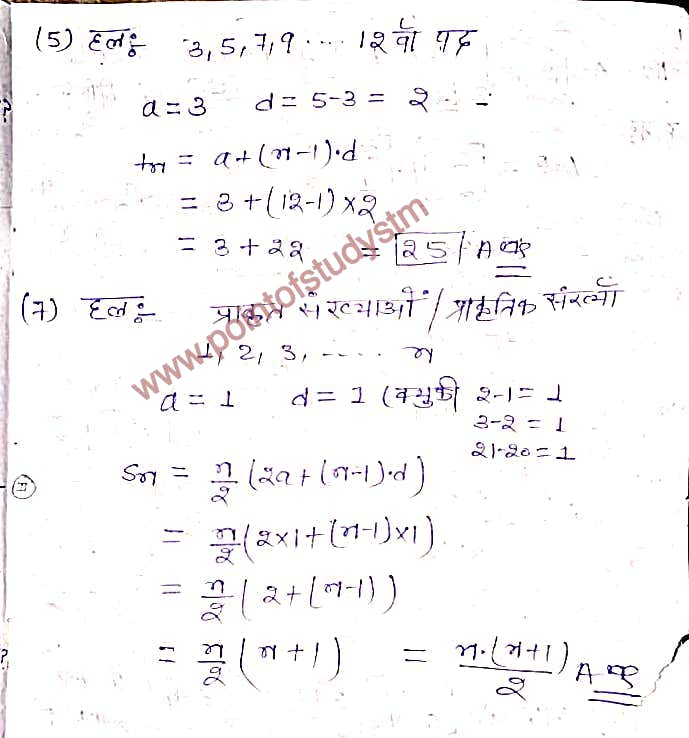 (5) हलः 3, 5, 7, 9 .... 12 वाँ पद
a = 3 d = 5-3 = 2
tn = a + (n-1)·d
= 3 + (12-1) × 2
= 3 + 22 = 25 Ans
(7) हलः प्राकृत संख्याओं / प्राकृतिक संख्या
1, 2, 3, ..... n
a = 1 d = 1 (क्युकी 2-1 = 1
3-2 = 1
21-20 = 1
II
Sn = n/2 (2a + (n-1)·d)
= n/2 (2×1 + (n-1)×1)
= n/2 (2 + (n-1))
= n/2 (n+1) = n·(n+1)/2 Ans
www.pointofstudystm